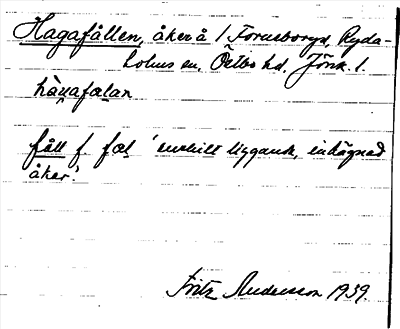 Hagafållen, åker å 1 Forneboryd, Ryda-
holms sn, Östbo hd, Jönk. l.
hàgafælan
fåll f. fæl 'enskilt liggande, inhägnad
åker.'
Fritz Andersson 1939